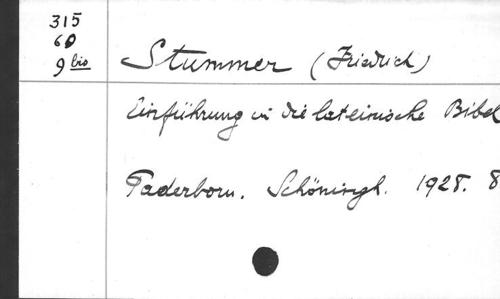 315
60
9 bis
Stummer (Friedrich)
Einführung in die lateinische Bibel
Paderborn. Schöningh. 1928. 8